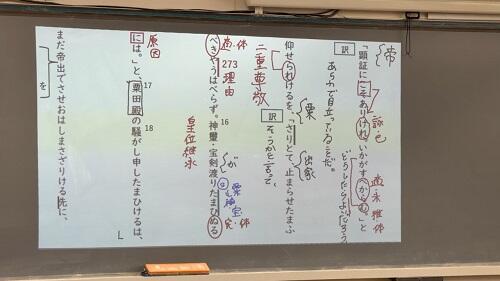 帝
「顕証にこそありけれ。いかがすべからむ。」と
詠・已
適・永推体
訳
あらわで目立っていることだ。
どうしたらよいだろう。
仰せられけるを、「さりとて、止まらせたまふ
二重尊敬
粟
出家
訳
そうかと言って、
適・体
273
理由
べきやうはべらず。神璽・宝剣渡りたまひぬる
16
が
神宝
完・体
皇位継承
には。」と、粟田殿の騒がし申したまひけるは、
原因
17
18
まだ帝出でさせおはしまさざりける先に、
を